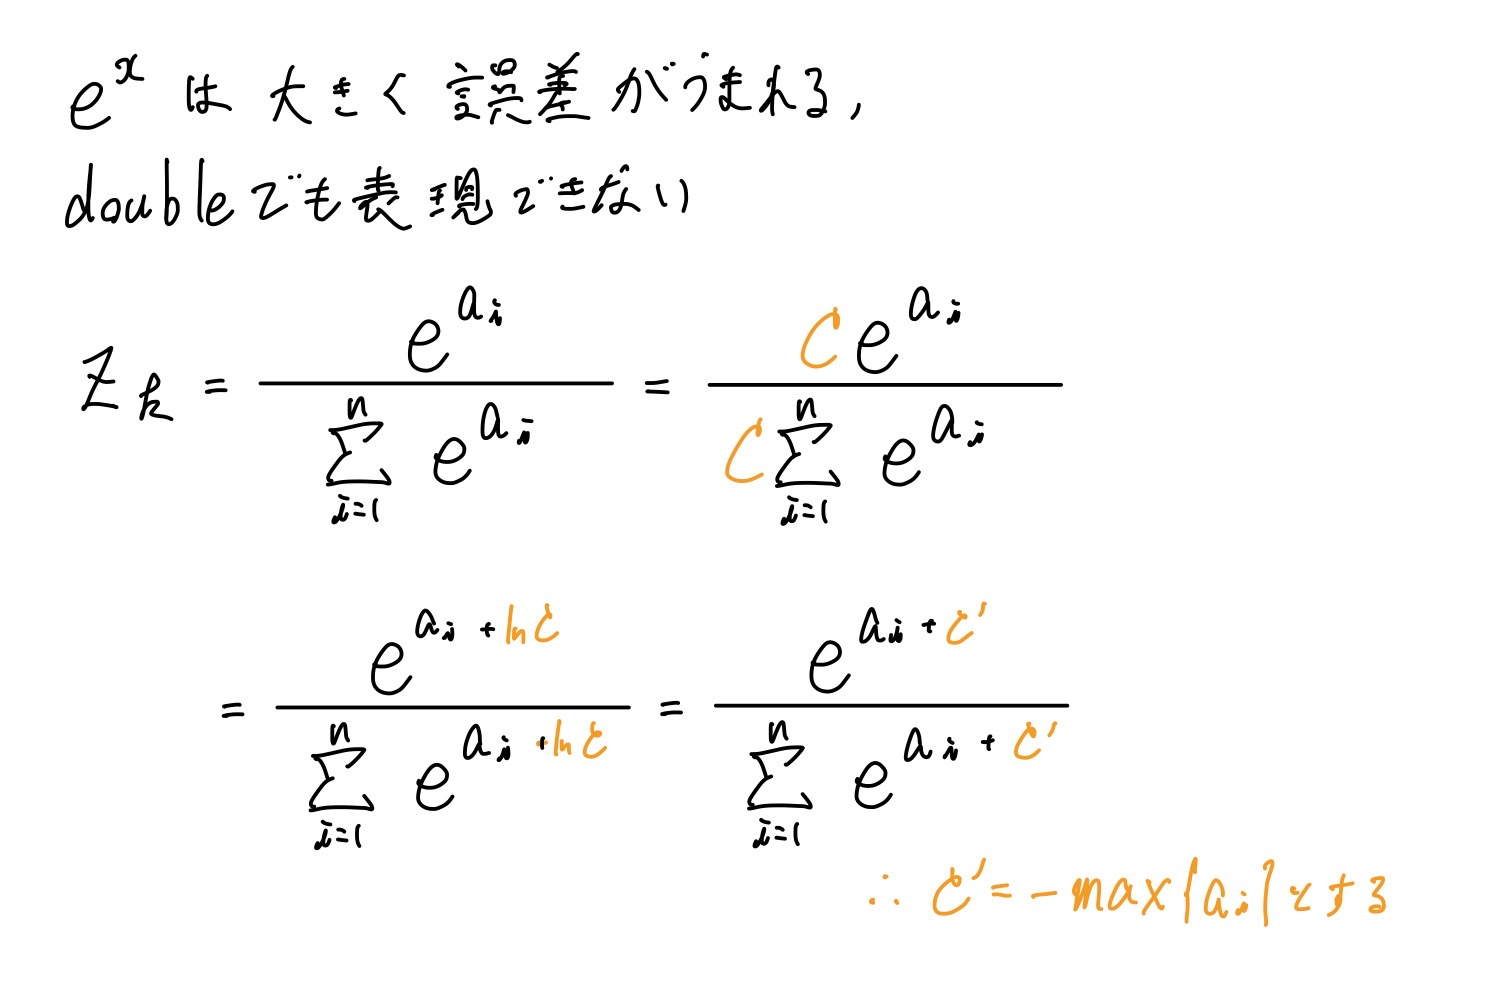 e^x は大きく誤差がうまれる,
doubleでも表現できない
Z_k = \frac{e^{a_i}}{\sum_{i=1}^{n} e^{a_i}} = \frac{C e^{a_i}}{C \sum_{i=1}^{n} e^{a_i}}
= \frac{e^{a_i + \ln C}}{\sum_{i=1}^{n} e^{a_i + \ln C}} = \frac{e^{a_i + C'}}{\sum_{i=1}^{n} e^{a_i + C'}}
∴ C' = -max{a_i}とする